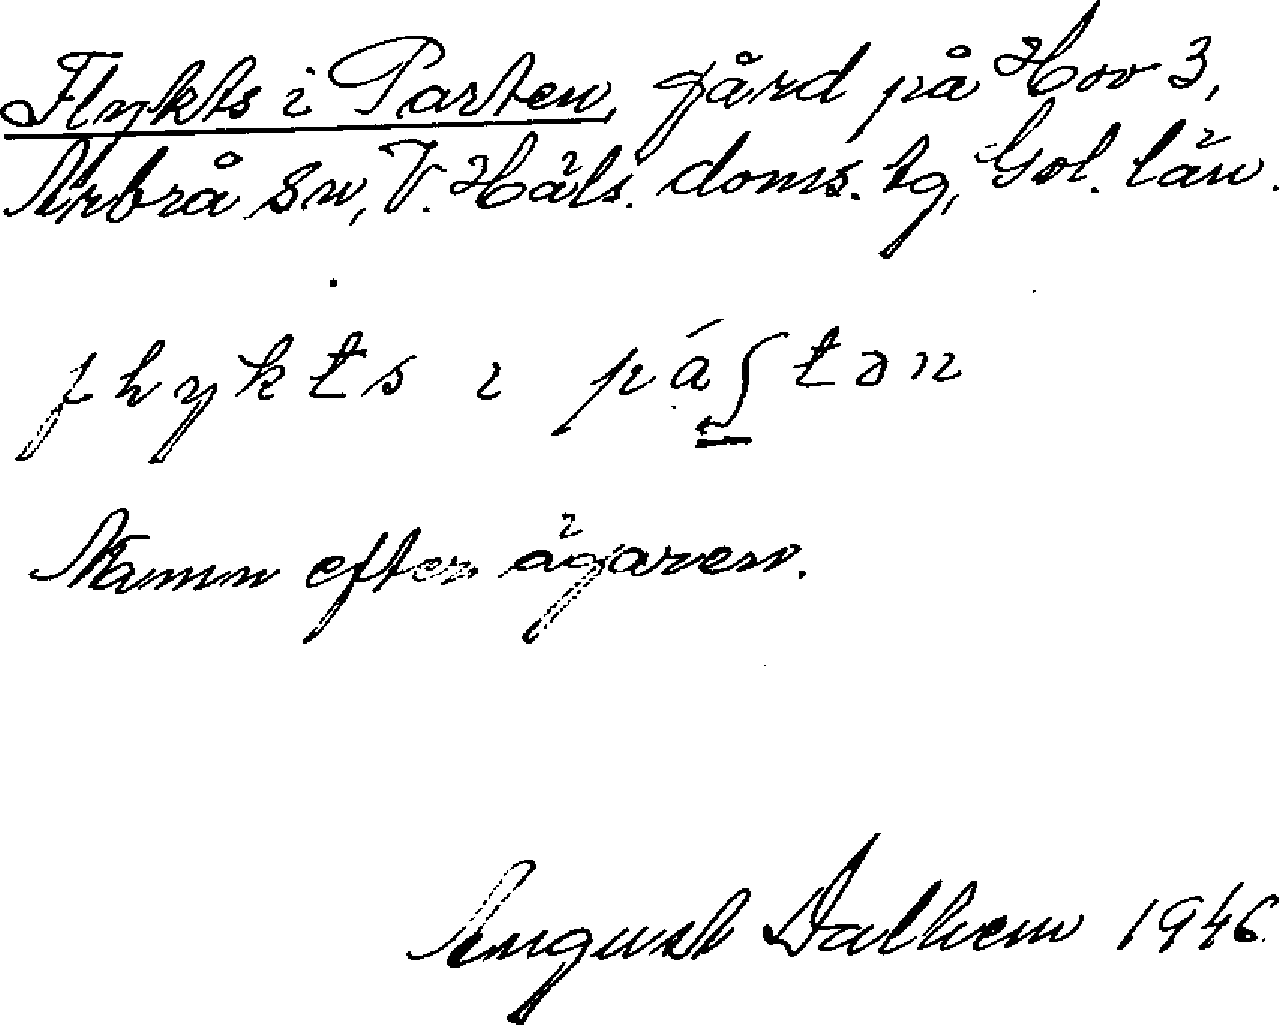 Flykts i Parten, gård på Hov 3,
Arbrå sn, V. Häls. doms. tg, Gvl. län.
flykts i páʃtən
Namn efter ägaren.
August Dalhem 1946